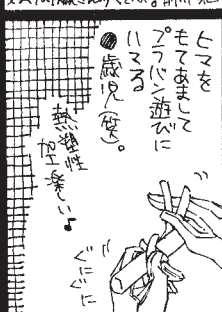 ヒマを
もてあまして
プラバン遊びに
ハマる
●歳児(笑)。
熱塑性
加工楽しい♪
ぐにぐに